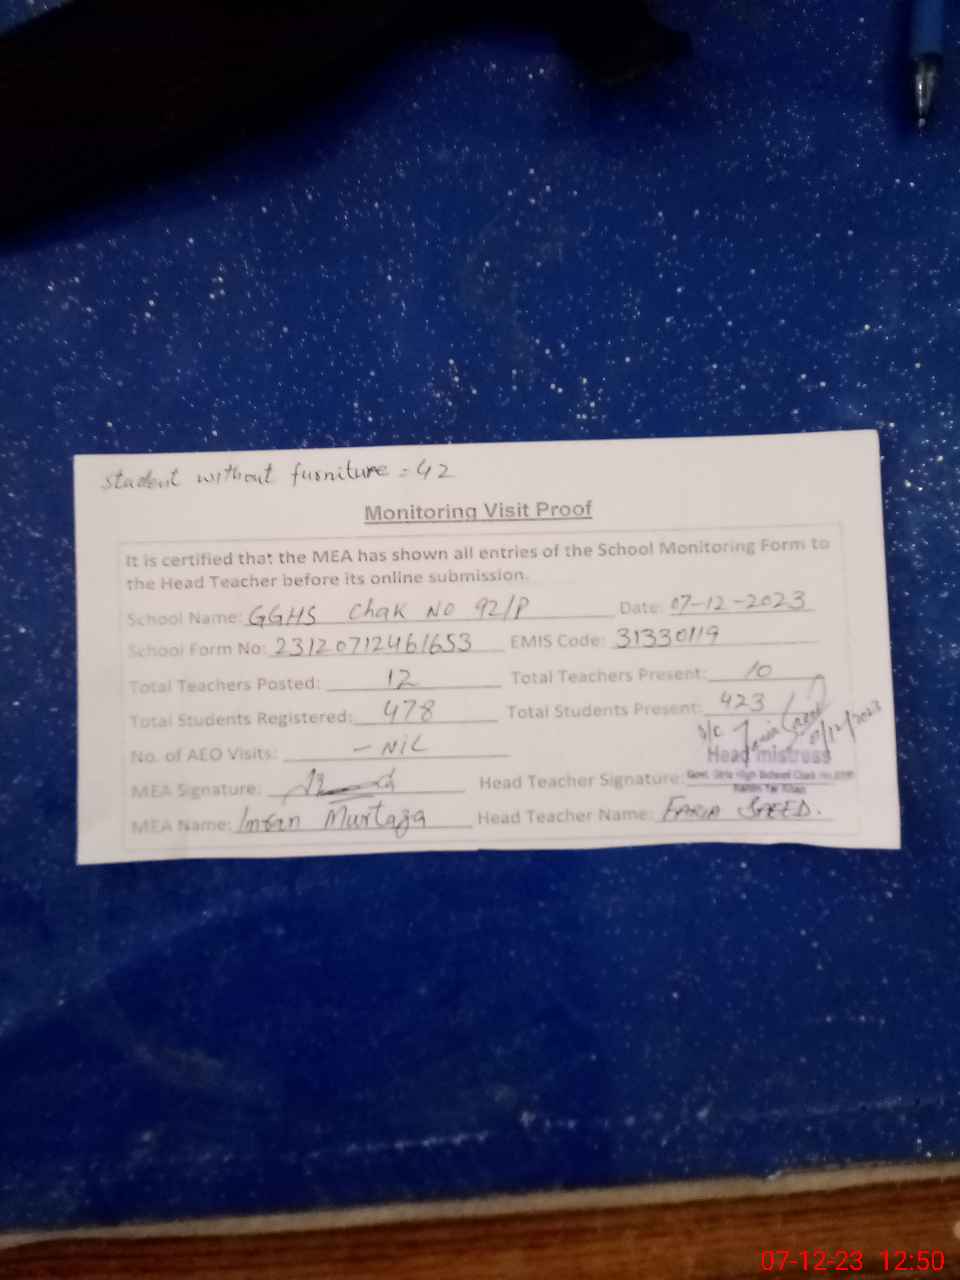 student without furniture = 42
Monitoring Visit Proof
It is certified that the MEA has shown all entries of the School Monitoring Form to
the Head Teacher before its online submission.
School Name: GGHS Chak No 92/P Date: 07-12-2023
School Form No: 23120712461653 EMIS Code: 31330119
Total Teachers Posted: 12 Total Teachers Present: 10
Total Students Registered: 478 Total Students Present: 423
No. of AEO Visits: - NiL
Head mistress
MEA Signature: Head Teacher Signature:
Govt. Girls High School Chak
Rahim Yar Khan
MEA Name: Murtaza Head Teacher Name: FARIA SAEED.
07-12-23 12:50